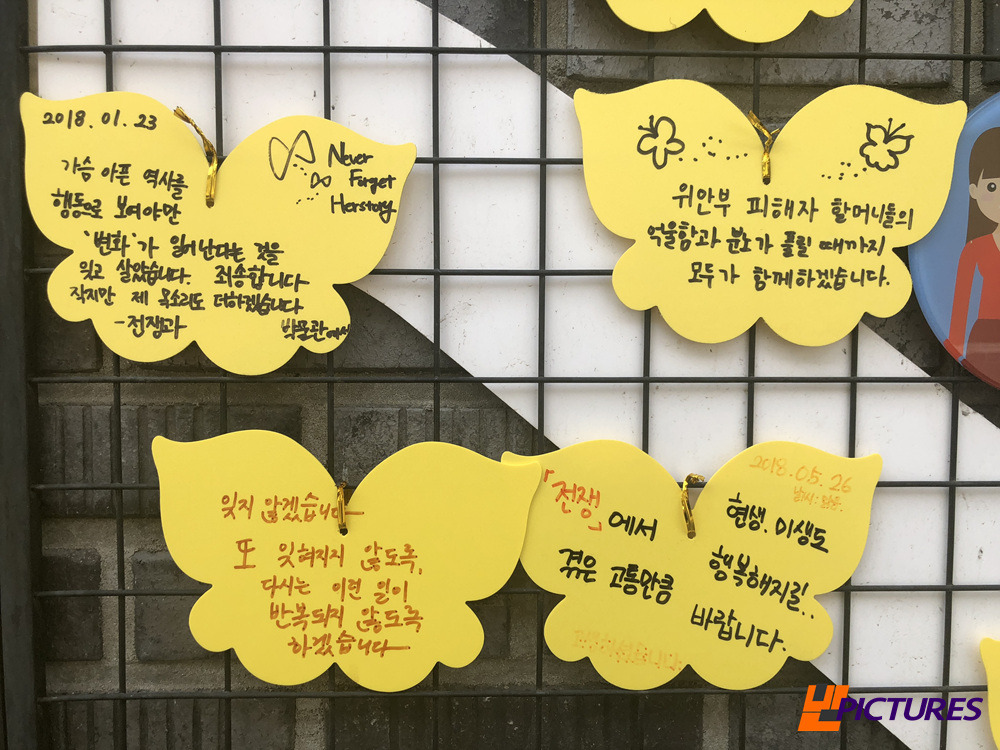 2018.01.23
가슴 아픈 역사를
행동으로 보여야만
'변화'가 일어난다는 것을
잊고 살았습니다. 죄송합니다
작지만 제 목소리도 더하겠습니다
-전쟁과
박물관에서
Never
Forget
Herstory
위안부 피해자 할머니들의
억울함과 분노가 풀릴 때까지
모두가 함께하겠습니다.
잊지 않겠습니다
또 잊혀지지 않도록,
다시는 이런 일이
반복되지 않도록
하겠습니다
「전쟁」에서
겪은 고통만큼
2018.05.26
날씨: 맑음.
현생. 미생도
행복해지길!..
바랍니다.
UPICTURES